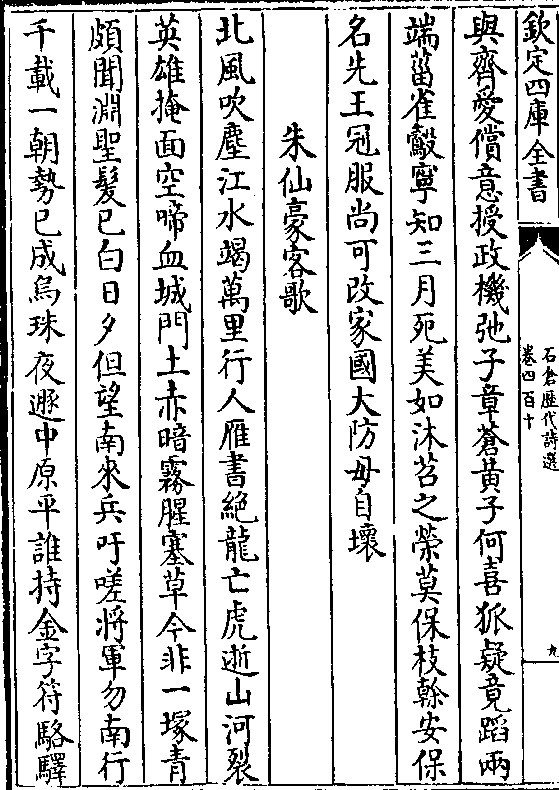 欽定四庫全書
石倉歷代詩選
卷四百十
九
與齊愛償意授政機弛子章蒼黃子何喜狐疑竟蹈兩
端菑雀鷇寧知三月死美如沐苕之榮莫保枝榦安保
名先王冠服尚可改家國大防毋自壞
朱仙豪客歌
北風吹塵江水竭萬里行人雁書絕龍亡虎逝山河裂
英雄掩面空啼血城門土赤暗霧腥塞草今非一塚青
頗聞淵聖髮已白日夕但望南來兵吁嗟將軍勿南行
千載一朝勢已成烏珠夜遯中原平誰持金字符駱驛